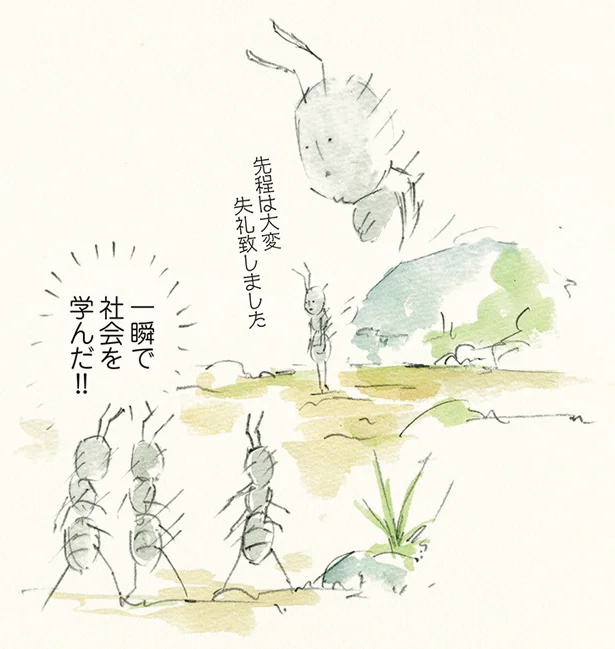 先程は大変
失礼致しました
一瞬で
社会を
学んだ!!